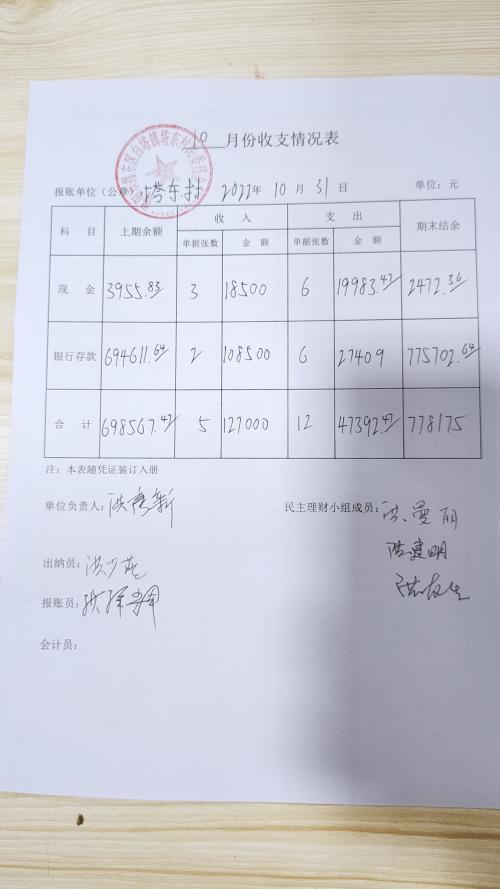 10 月份收支情况表
报账单位（公章） 塔东村 2022年 10 月 31 日 单位：元
科 目 上期余额 收 入 支 出 期末结余
单据张数 金 额 单据张数 金 额
现 金 3955.83 3 18500 6 19983.47 2472.36
银行存款 694611.64 2 108500 6 27409 775702.64
合 计 698567.47 5 127000 12 47392.47 778175
注：本表随凭证装订入册
单位负责人： 民主理财小组成员：洪曼丽
洪建明
出纳员：
报账员：
会计员：